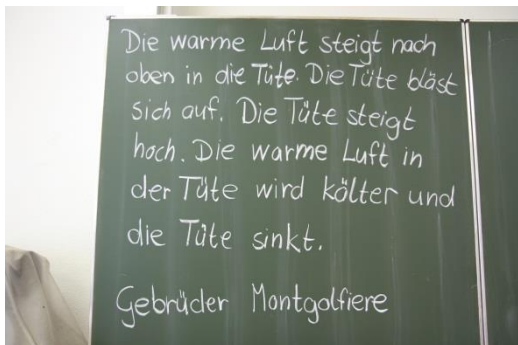 Die warme Luft steigt nach
oben in die Tüte. Die Tüte bläst
sich auf. Die Tüte steigt
hoch. Die warme Luft in
der Tüte wird kälter und
die Tüte sinkt.
Gebrüder Montgolfiere